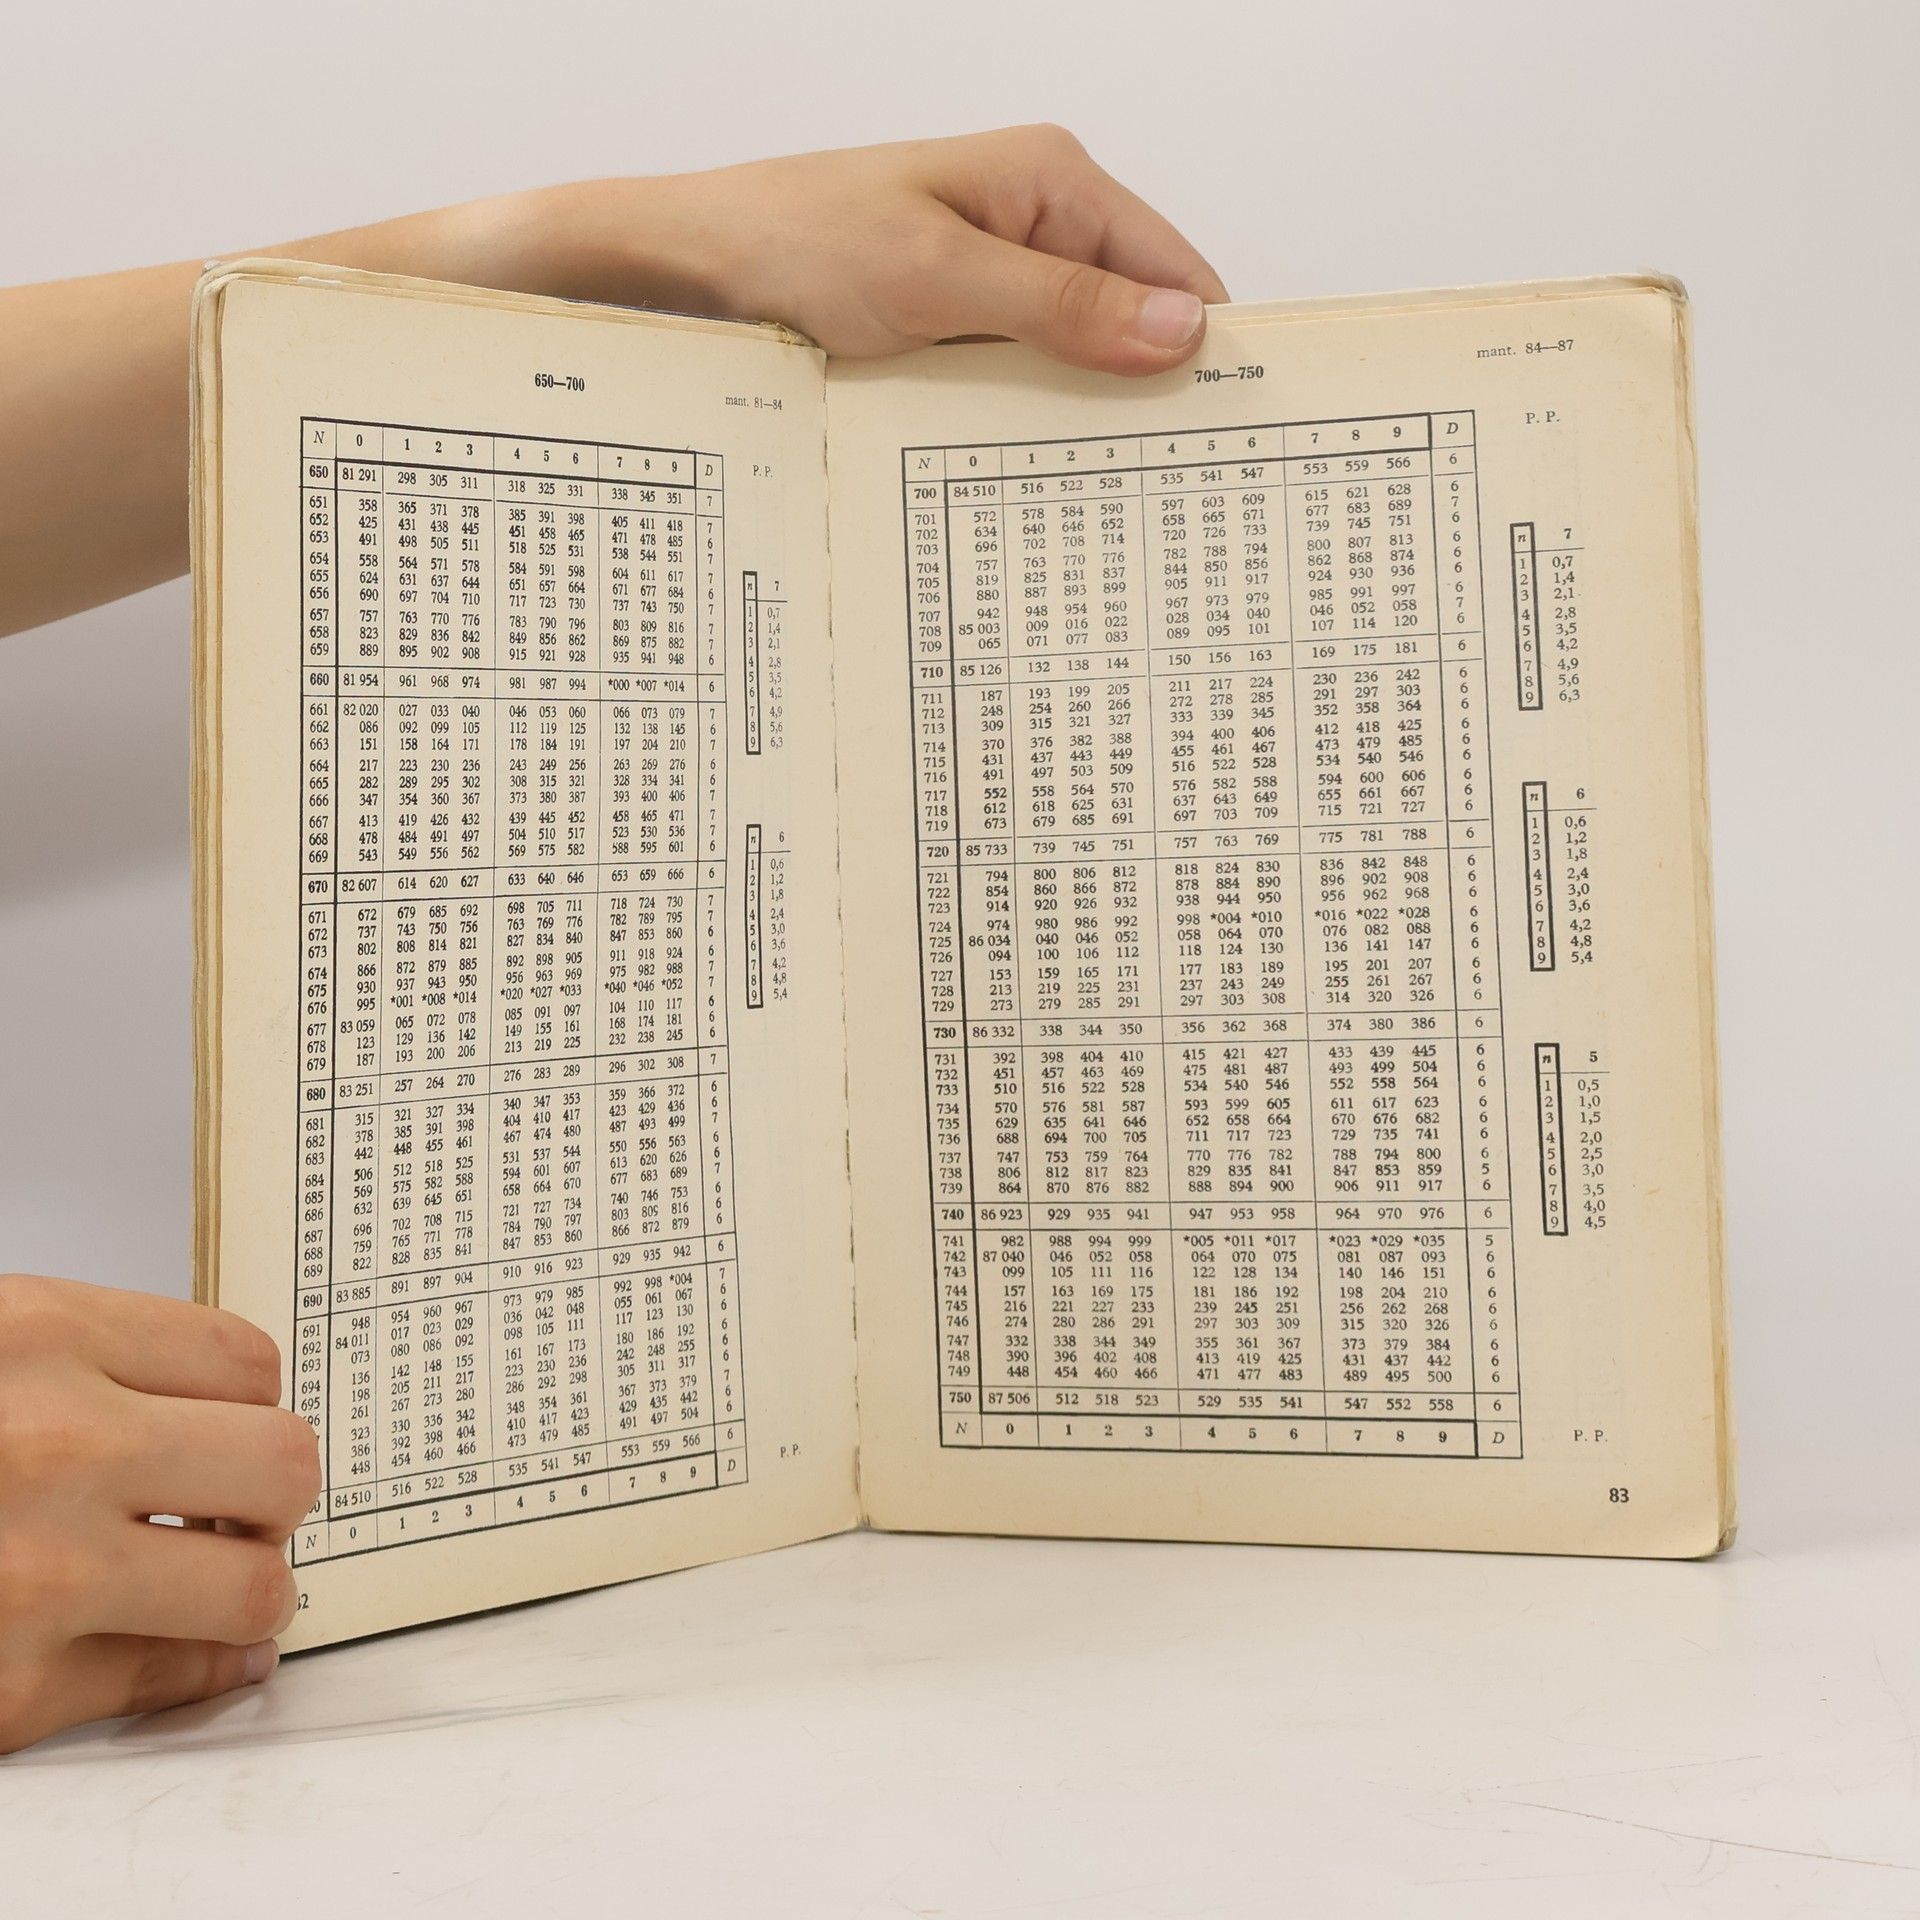 650—700
mant. 81—84
N 0 1 2 3 4 5 6 7 8 9 D
P. P.
650 81 291 298 305 311 318 325 331 338 345 351 7
651 358 365 371 378 385 391 398 405 411 418 7
652 425 431 438 445 451 458 465 471 478 485 6
653 491 498 505 511 518 525 531 538 544 551 7
654 558 564 571 578 584 591 598 604 611 617 7
655 624 631 637 644 651 657 664 671 677 684 6
656 690 697 704 710 717 723 730 737 743 750 7
657 757 763 770 776 783 790 796 803 809 816 7
658 823 829 836 842 849 856 862 869 875 882 7
659 889 895 902 908 915 921 928 935 941 948 6
660 81 954 961 968 974 981 987 994 *000 *007 *014 6
661 82 020 027 033 040 046 053 060 066 073 079 7
662 086 092 099 105 112 119 125 132 138 145 6
663 151 158 164 171 178 184 191 197 204 210 7
664 217 223 230 236 243 249 256 263 269 276 6
665 282 289 295 302 308 315 321 328 334 341 6
666 347 354 360 367 373 380 387 393 400 406 7
667 413 419 426 432 439 445 452 458 465 471 7
668 478 484 491 497 504 510 517 523 530 536 7
669 543 549 556 562 569 575 582 588 595 601 6
670 82 607 614 620 627 633 640 646 653 659 666 6
671 672 679 685 692 698 705 711 718 724 730 7
672 737 743 750 756 763 769 776 782 789 795 7
673 802 808 814 821 827 834 840 847 853 860 6
674 866 872 879 885 892 898 905 911 918 924 6
675 930 937 943 950 956 963 969 975 982 988 7
676 995 *001 *008 *014 *020 *027 *033 *040 *046 *052 7
677 83 059 065 072 078 085 091 097 104 110 117 6
678 123 129 136 142 149 155 161 168 174 181 6
679 187 193 200 206 213 219 225 232 238 245 6
680 83 251 257 264 270 276 283 289 296 302 308 7
681 315 321 327 334 340 347 353 359 366 372 6
682 378 385 391 398 404 410 417 423 429 436 6
683 442 448 455 461 467 474 480 487 493 499 7
684 506 512 518 525 531 537 544 550 556 563 6
685 569 575 582 588 594 601 607 613 620 626 6
686 632 639 645 651 658 664 670 677 683 689 7
687 696 702 708 715 721 727 734 740 746 753 6
688 759 765 771 778 784 790 797 803 809 816 6
689 822 828 835 841 847 853 860 866 872 879 6
690 83 885 891 897 904 910 916 923 929 935 942 6
691 948 954 960 967 973 979 985 992 998 *004 7
692 84 011 017 023 029 036 042 048 055 061 067 6
693 073 080 086 092 098 105 111 117 123 130 6
694 136 142 148 155 161 167 173 180 186 192 6
695 198 205 211 217 223 230 236 242 248 255 6
96 261 267 273 280 286 292 298 305 311 317 6
323 330 336 342 348 354 361 367 373 379 7
386 392 398 404 410 417 423 429 435 442 6
448 454 460 466 473 479 485 491 497 504 6
0 84 510 516 522 528 535 541 547 553 559 566 6
N 0 1 2 3 4 5 6 7 8 9 D
n 7
1 0,7
2 1,4
3 2,1
4 2,8
5 3,5
6 4,2
7 4,9
8 5,6
9 6,3
n 6
1 0,6
2 1,2
3 1,8
4 2,4
5 3,0
6 3,6
7 4,2
8 4,8
9 5,4
P. P.
32
700—750
mant. 84—87
N 0 1 2 3 4 5 6 7 8 9 D
P. P.
700 84 510 516 522 528 535 541 547 553 559 566 6
701 572 578 584 590 597 603 609 615 621 628 6
702 634 640 646 652 658 665 671 677 683 689 7
703 696 702 708 714 720 726 733 739 745 751 6
704 757 763 770 776 782 788 794 800 807 813 6
705 819 825 831 837 844 850 856 862 868 874 6
706 880 887 893 899 905 911 917 924 930 936 6
707 942 948 954 960 967 973 979 985 991 997 6
708 85 003 009 016 022 028 034 040 046 052 058 7
709 065 071 077 083 089 095 101 107 114 120 6
710 85 126 132 138 144 150 156 163 169 175 181 6
711 187 193 199 205 211 217 224 230 236 242 6
712 248 254 260 266 272 278 285 291 297 303 6
713 309 315 321 327 333 339 345 352 358 364 6
714 370 376 382 388 394 400 406 412 418 425 6
715 431 437 443 449 455 461 467 473 479 485 6
716 491 497 503 509 516 522 528 534 540 546 6
717 552 558 564 570 576 582 588 594 600 606 6
718 612 618 625 631 637 643 649 655 661 667 6
719 673 679 685 691 697 703 709 715 721 727 6
720 85 733 739 745 751 757 763 769 775 781 788 6
721 794 800 806 812 818 824 830 836 842 848 6
722 854 860 866 872 878 884 890 896 902 908 6
723 914 920 926 932 938 944 950 956 962 968 6
724 974 980 986 992 998 *004 *010 *016 *022 *028 6
725 86 034 040 046 052 058 064 070 076 082 088 6
726 094 100 106 112 118 124 130 136 141 147 6
727 153 159 165 171 177 183 189 195 201 207 6
728 213 219 225 231 237 243 249 255 261 267 6
729 273 279 285 291 297 303 308 314 320 326 6
730 86 332 338 344 350 356 362 368 374 380 386 6
731 392 398 404 410 415 421 427 433 439 445 6
732 451 457 463 469 475 481 487 493 499 504 6
733 510 516 522 528 534 540 546 552 558 564 6
734 570 576 581 587 593 599 605 611 617 623 6
735 629 635 641 646 652 658 664 670 676 682 6
736 688 694 700 705 711 717 723 729 735 741 6
737 747 753 759 764 770 776 782 788 794 800 6
738 806 812 817 823 829 835 841 847 853 859 5
739 864 870 876 882 888 894 900 906 911 917 6
740 86 923 929 935 941 947 953 958 964 970 976 6
741 982 988 994 999 *005 *011 *017 *023 *029 *035 5
742 87 040 046 052 058 064 070 075 081 087 093 6
743 099 105 111 116 122 128 134 140 146 151 6
744 157 163 169 175 181 186 192 198 204 210 6
745 216 221 227 233 239 245 251 256 262 268 6
746 274 280 286 291 297 303 309 315 320 326 6
747 332 338 344 349 355 361 367 373 379 384 6
748 390 396 402 408 413 419 425 431 437 442 6
749 448 454 460 466 471 477 483 489 495 500 6
750 87 506 512 518 523 529 535 541 547 552 558 6
N 0 1 2 3 4 5 6 7 8 9 D
n 7
1 0,7
2 1,4
3 2,1
4 2,8
5 3,5
6 4,2
7 4,9
8 5,6
9 6,3
n 6
1 0,6
2 1,2
3 1,8
4 2,4
5 3,0
6 3,6
7 4,2
8 4,8
9 5,4
n 5
1 0,5
2 1,0
3 1,5
4 2,0
5 2,5
6 3,0
7 3,5
8 4,0
9 4,5
P. P.
83